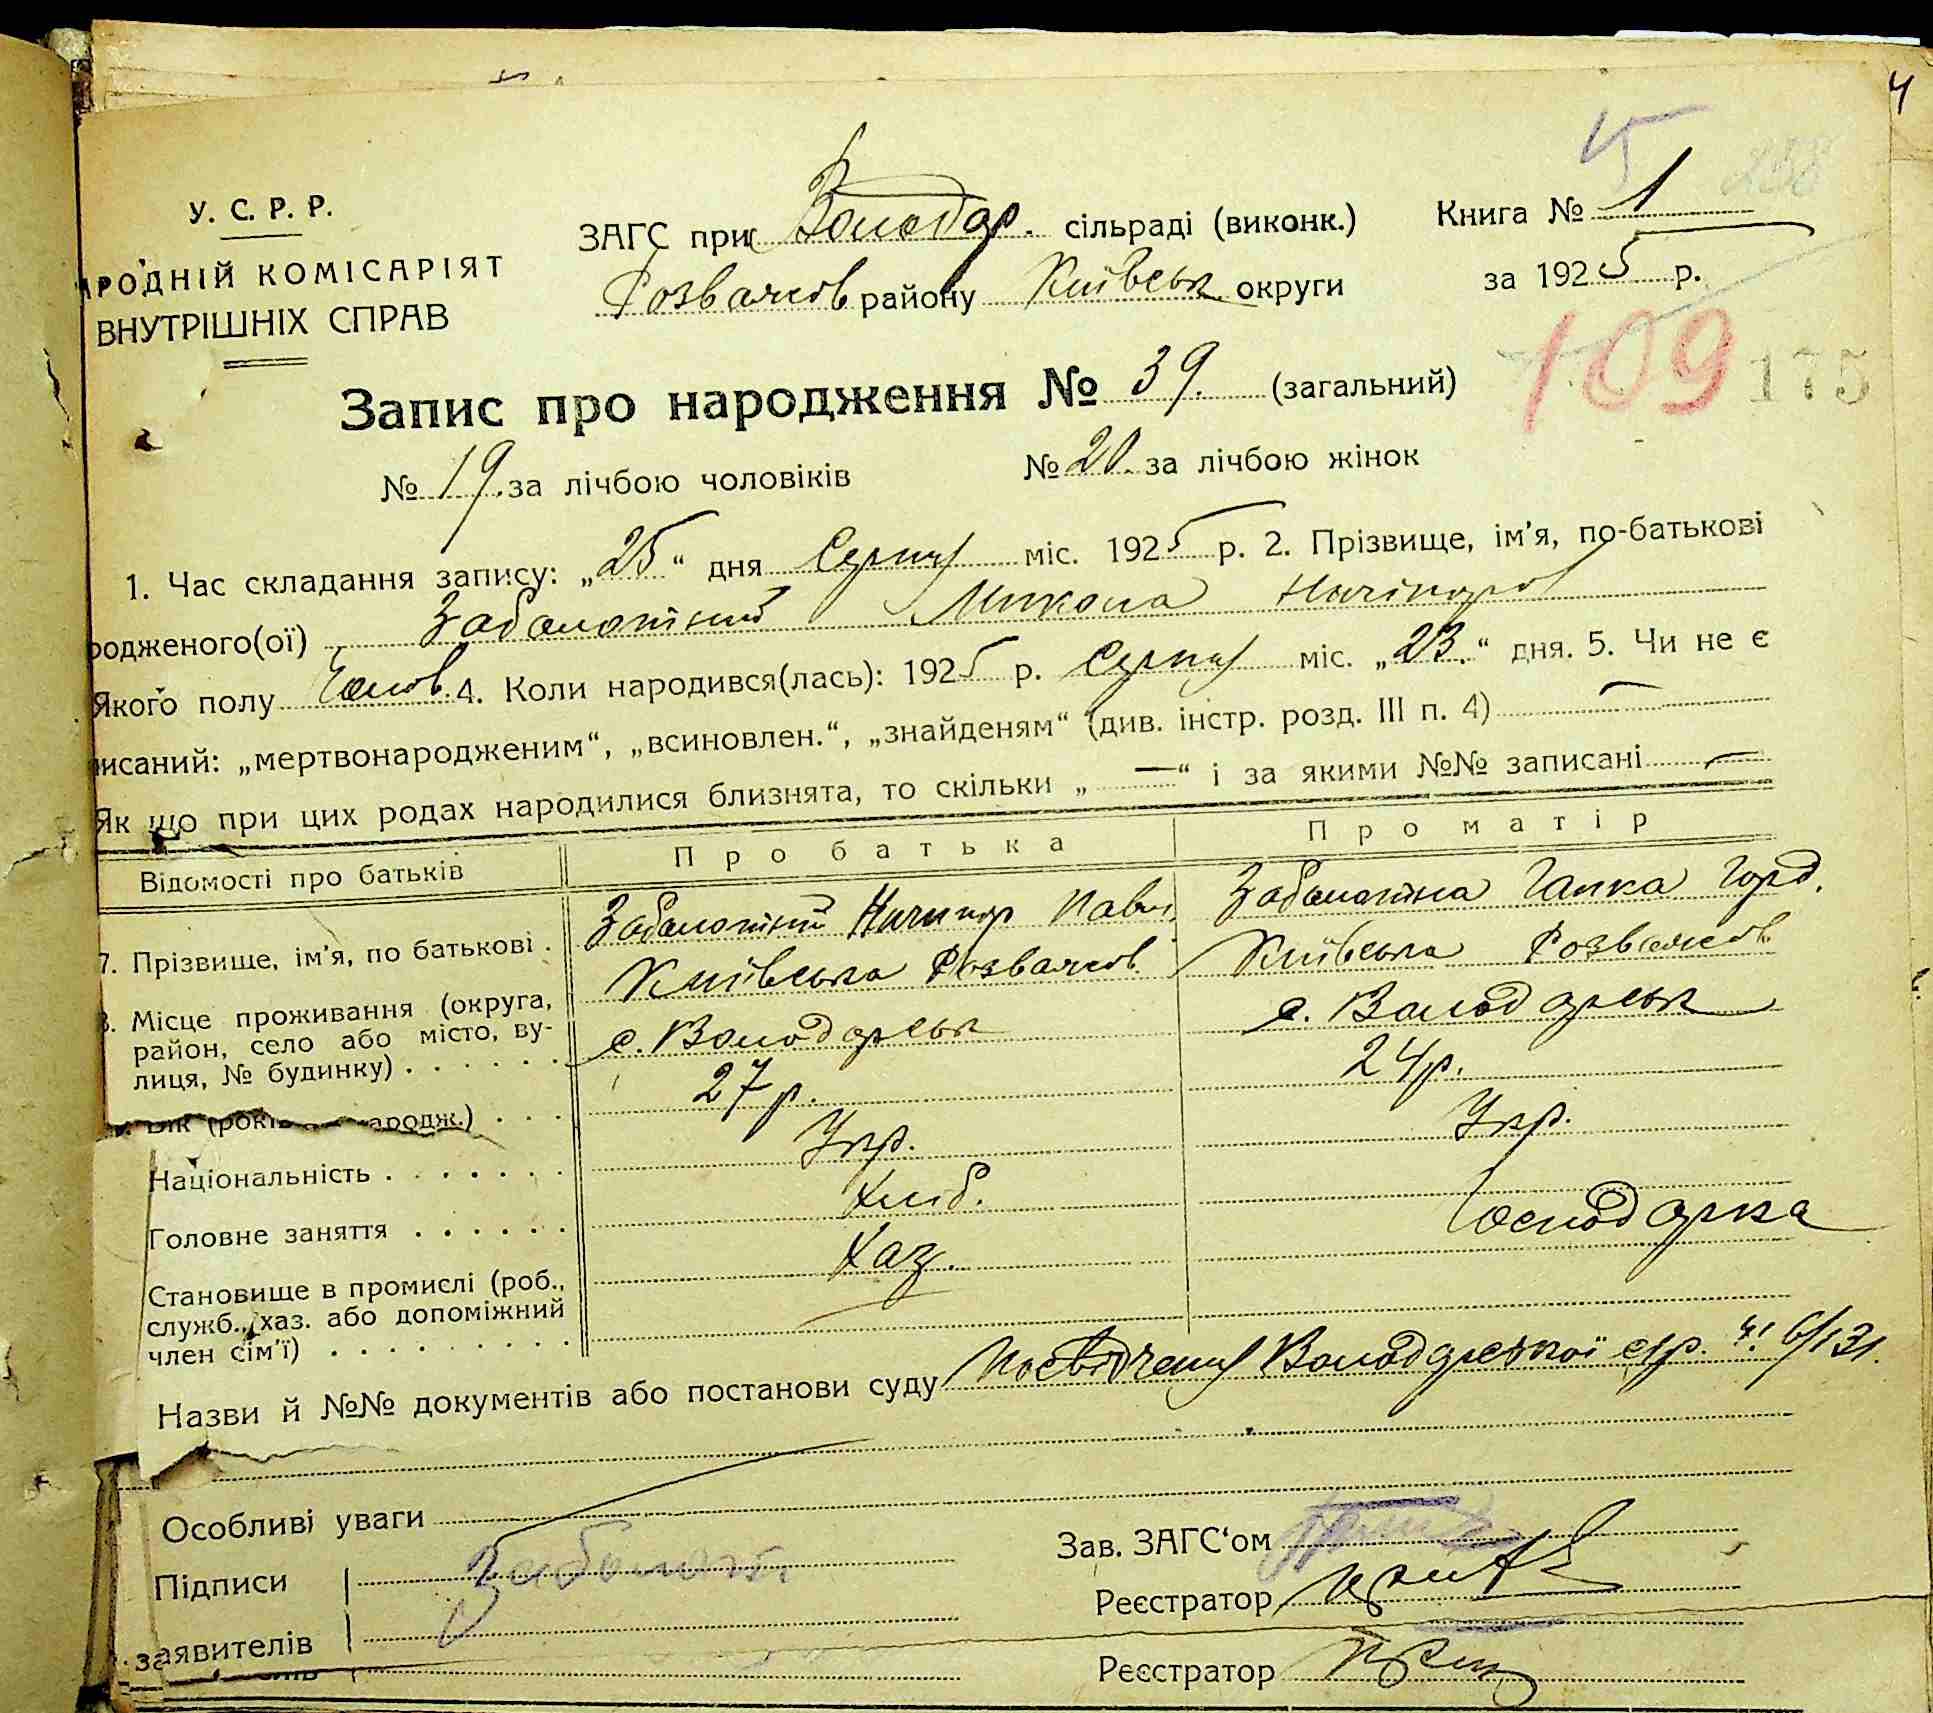 4
15 238
У. С. Р. Р.
РОДНІЙ КОМІСАРІЯТ
ВНУТРІШНІХ СПРАВ
ЗАГС при Володар. сільраді (виконк.)
Розважів району Київськ округи
Книга № 1
за 1925 р.
109 175
Запис про народження № 39. (загальний)
№ 19. за лічбою чоловіків № 20. за лічбою жінок
1. Час складання запису: „25“ дня Серпня міс. 1925 р. 2. Прізвище, ім'я, по-батькові
родженого(ої) Заболотний Микола Ничипоров
Якого полу Чолов. 4. Коли народився(лась): 1925 р. Серпня міс. „23.“ дня. 5. Чи не є
писаний: „мертвонародженим“, „всиновлен.“, „знайденям“ (див. інстр. розд. III п. 4) —
Як що при цих родах народилися близнята, то скільки „—“ і за якими №№ записані —
Відомості про батьків Про батька Про матір
7. Прізвище, ім'я, по батькові . Заболотний Ничипор Павл. Заболотна Гапка Горд.
8. Місце проживання (округа, район, село або місто, вулиця, № будинку) . . . . . . Київська Розважів Київська Розважів
с. Володарськ с. Володарськ
Вік (рокі народж.) . . . 27 р. 24 р.
Національність . . . . . . . Укр. Укр.
Головне заняття . . . . . . Хліб. Господарка
Становище в промислі (роб., служб., хаз. або допоміжний член сім'ї) . . . . . . . . . . Хаз.
Назви й №№ документів або постанови суду Посвідчення Володарської с/р. ч. 6/131.
Особливі уваги
Зав. ЗАГС'ом
Підписи Заболот.
Реєстратор
заявителів
Реєстратор